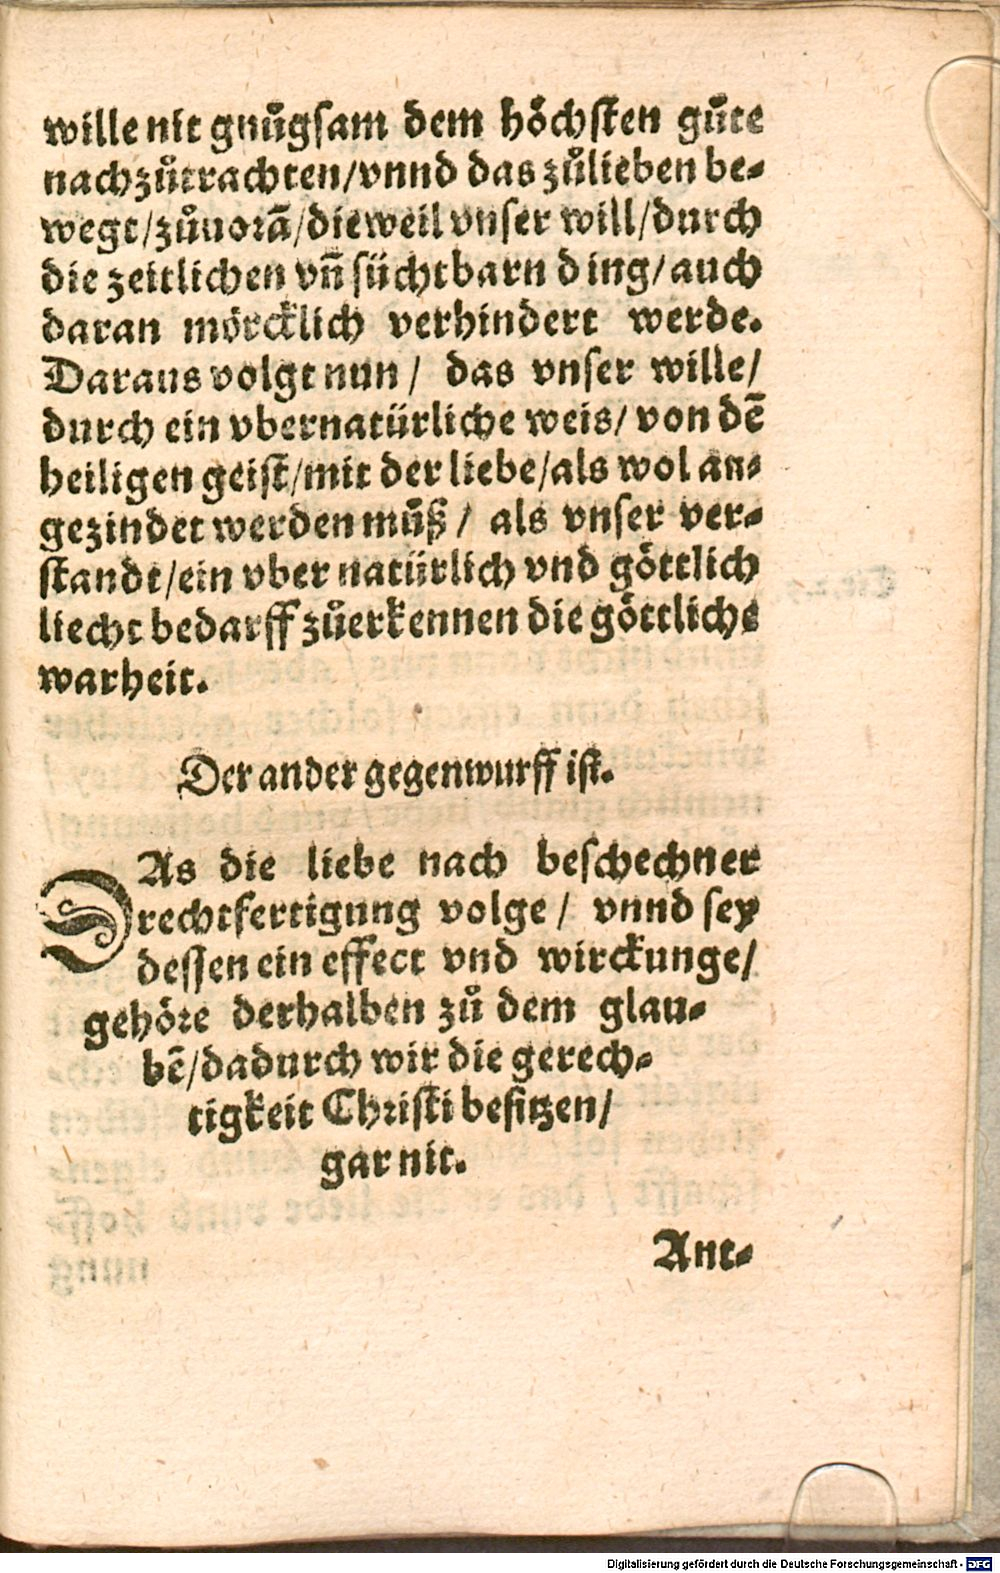 wille nit gnůgsam dem höchsten gůte
nachzůtrachten/vnnd das zůlieben be-
wegt/zůuorā/dieweil vnser will/durch
die zeitlichen vn̄ süchtbarn ding/auch
daran mörcklich verhindert werde.
Daraus volgt nun/ das vnser wille/
durch ein vbernatürliche weis/von dē
heiligen geist/mit der liebe/als wol an-
gezindet werden můß/ als vnser ver-
standt/ein vber natürlich vnd göttlich
liecht bedarff zůerkennen die göttliche
warheit.
Der ander gegenwurff ist.
DAs die liebe nach beschechner
rechtfertigung volge/ vnnd sey
dessen ein effect vnd wirckunge/
gehöre derhalben zů dem glau-
bē/dadurch wir die gerech-
tigkeit Christi besitzen/
gar nit.
Ant-
Digitalisierung gefördert durch die Deutsche Forschungsgemeinschaft - DFG